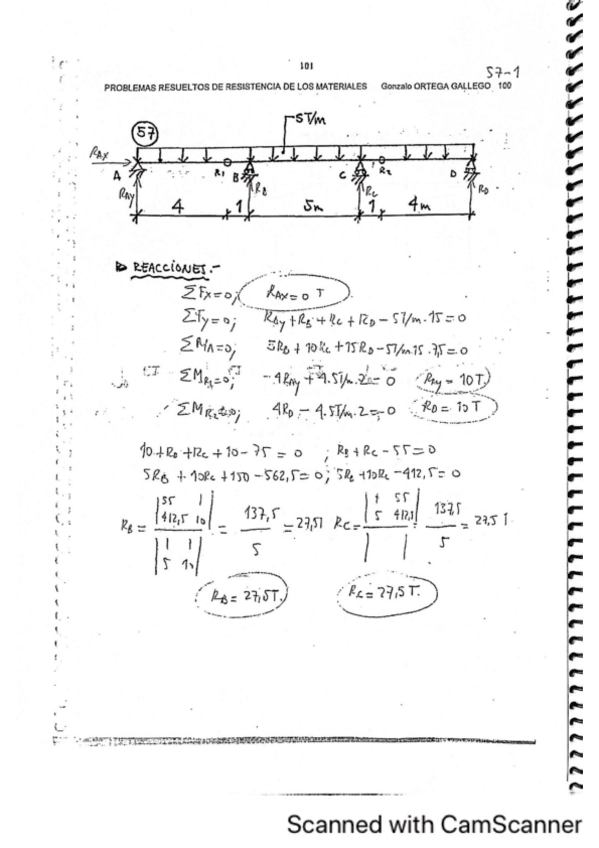 101
57-1
PROBLEMAS RESUELTOS DE RESISTENCIA DE LOS MATERIALES Gonzalo ORTEGA GALLEGO 100
57
5T/m
RAX
A R1 B C R2 D
RAy RB RC RD
4 1 5m 1 4m
REACCIONES.-
ΣFx=0; RAX=0 T
ΣFy=0; RAy+RB+RC+RD-5T/m.15=0
ΣMA=0; 5RB+10RC+15RD-5T/m.15.7,5=0
ΣMR1=0; -4RAy+4.5T/m.2=0 RAy=10T.
ΣMR2=0; 4RD-4.5T/m.2=0 RD=10T
10+RB+RC+10-75=0 ; RB+RC-55=0
5RB+10RC+150-562,5=0; 5RB+10RC-412,5=0
55 1 1 55
412,5 10 5 412,5
RB= = 137,5 =27,5T RC= 137,5 = 27,5T
1 1 5 5
5 10
RB=27,5T. RC=27,5T.
Scanned with CamScanner